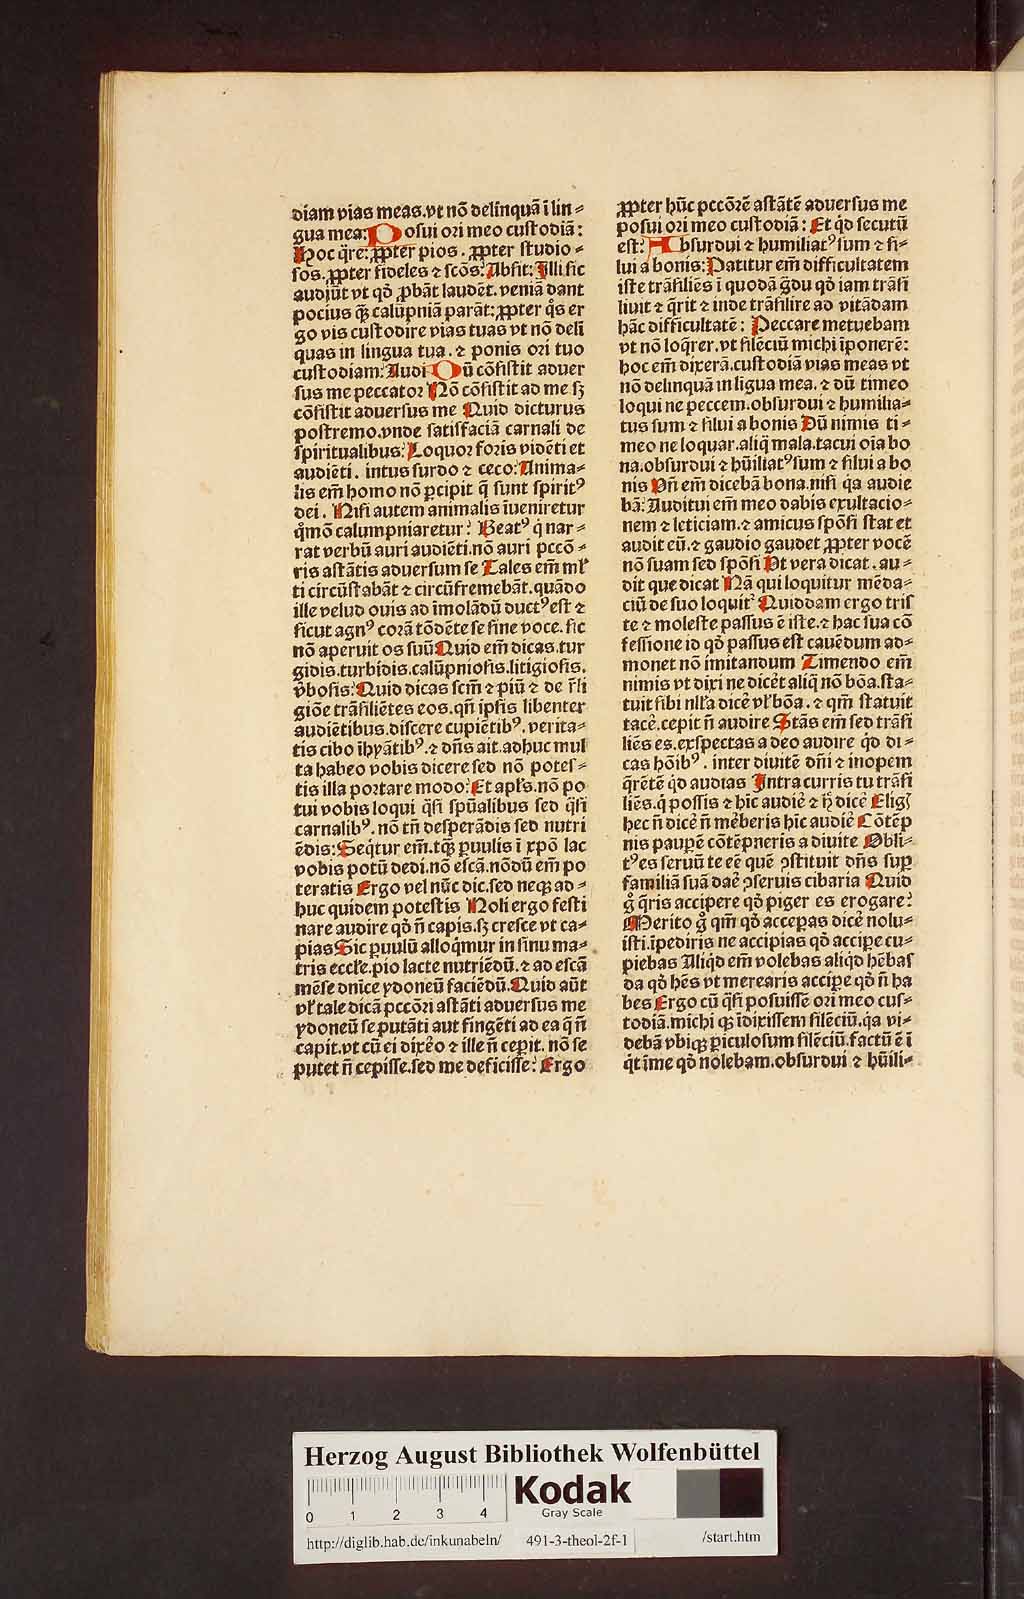 diam vias meas.vt nō delinquā ī lin⸗
gua mea: Posui ori meo custodiā:
Hoc q̄re: ꝓpter pios. ꝓpter studio⸗
sos. ꝓpter fideles ⁊ scōs: Absit: Illi sic
audiūt vt qđ ꝓbāt laudēt. veniā dant
pocius qꝫ calūpniā parāt: ꝓpter q̊s er
go vis custodire vias tuas vt nō deli
quas in lingua tua. ⁊ ponis ori tuo
custodiam: Audi Dū cōsistit aduer
sus me peccator Nō cōsistit ad me sꝫ
cōsistit aduersus me Quid dicturus
postremo.vnde satisfaciā carnali de
spiritualibus: Loquor foris vidēti et
audiēti. intus surdo ⁊ ceco: Anima⸗
lis em̄ homo nō ꝑcipit q̄ sunt spiritꝰ
dei. Nisi autem animalis īueniretur
q̊mō calumpniaretur: Beatꝰ q̇ nar⸗
rat verbū auri audiēti.nō auri pccō⸗
ris astātis aduersum se Tales em̄ ml̄
ti circūstabāt ⁊ circūfremebāt.quādo
ille velud ouis ad īmolādū ductꝰ est ⁊
sicut agnꝰ corā tōdēte se sine voce. sic
nō aperuit os suū Quid em̄ dicas.tur
gidis.turbidis.calūpniosis.litigiosis.
v̄bosis: Quid dicas scm̄ ⁊ piū ⁊ de r̄li
giōe trāsiliētes eos. qn̄ ipsis libenter
audiētibus.discere cupiētibꝰ. verita⸗
tis cibo īhyātibꝰ.⁊ dn̄s ait.adhuc mul
ta habeo vobis dicere sed nō potes⸗
tis illa portare modo: Et apl̄s.nō po
tui vobis loqui q̇si spūalibus sed q̇si
carnalibꝰ. nō tn̄ desperādis sed nutri
ēdis: Seq̇tur em̄.tqꝫ ꝑuulis ī xpō lac
vobis potū dedi.nō escā.nōdū em̄ po
teratis Ergo vel nūc dic.sed neqꝫ ad⸗
huc quidem potestis Noli ergo festi
nare audire qđ n̄ capis.sꝫ cresce vt ca⸗
pias Sic ꝑuulū alloq̇mur in sinu ma⸗
tris eccl̄e.pio lacte nutriēdū.⁊ ad escā
mēse dn̄ice ydoneū faciēdū. Quid aūt
vl̄ tale dicā pccōri astāti aduersus me
ydoneū se putāti aut fingēti ad ea q̄ n̄
capit.vt cū ei dixeo ⁊ ille n̄ cepit. nō se
putet n̄ cepisse.sed me defecisse: Ergo
ꝓpter hūc pccōrē astātē aduersus me
posui ori meo custodiā: Et qđ secutū
est: Absurdui ⁊ humiliatꝰ sum ⁊ si⸗
lui a bonis: Patitur em̄ difficultatem
iste trāsiliēs ī quodā g̊du qđ iam trāsi
liuit ⁊ q̄rit ⁊ inde trāsilire ad vitādam
hāc difficultatē: Peccare metuebam
vt nō loq̄rer.vt silēciū michi īponerē:
hoc em̄ dixerā.custodiā vias meas vt
nō delinquā in ligua mea. ⁊ dū timeo
loqui ne peccem.obsurdui ⁊ humilia⸗
tus sum ⁊ silui a bonis Dū nimis ti⸗
meo ne loquar.aliq̇ mala.tacui oīa bo
na.obsurdui ⁊ hūiliatꝰ sum ⁊ silui a bo
nis Vn̄ em̄ dicebā bona.nisi q̇a audie
bā: Auditui em̄ meo dabis exultacio⸗
nem ⁊ leticiam.⁊ amicus spōsi stat et
audit eū.⁊ gaudio gaudet ꝓpter vocē
nō suam sed spōsi Vt vera dicat. au⸗
dit que dicat Nā qui loquitur mēda⸗
ciū de suo loquit᷑ Quiddam ergo tris
te ⁊ moleste passus ē iste.⁊ hac sua cō
fessione id qđ passus est cauēdum ad⸗
monet nō imitandum Timendo em̄
nimis vt dixi ne dicet aliq̇ nō bōa.sta⸗
tuit sibi nll̄a dicē vl̄ bōa. ⁊ qm̄ statuit
tacē.cepit n̄ audire Stās em̄ sed trāsi
liēs es.exspectas a deo audire qđ di⸗
cas hōībꝰ. inter diuitē dn̄i ⁊ inopem
q̄rētē qđ audias Intra curris tu trāsi
liēs.q̇ possis ⁊ hic audiē ⁊ dicē
hec n̄ dicē n̄ mēberis hic audiē Cōtēp
nis paupē cōtēpneris a diuite Obli⸗
tꝰ es seruū te eē quē ꝯstituit dn̄s suꝑ
familiā suā daē ꝯseruis cibaria Quid
g̊ q̄ris accipere qđ piger es erogare:
Merito g̊ qm̄ qđ acceperas dicē nolu⸗
isti.īpediris ne accipias qđ accipe cu⸗
piebas Aliqđ em̄ volebas aliqđ hēbas
da qđ hēs vt merearis accipe qđ n̄ ha
bes Ergo cū q̇si posuissē ori meo cus⸗
todiā.michi qꝫ īdixissem silēciū.q̇a vi⸗
debā vbiqꝫ ꝑiculosum silēciū.factū ē ī
q̇t īme qđ nolebam.obsurdui ⁊ hūili⸗
Herzog August Bibliothek Wolfenbüttel
0 1 2 3 4
Kodak
Gray Scale
http://diglib.hab.de/inkunabeln/ 491-3-theol-2f-1 /start.htm